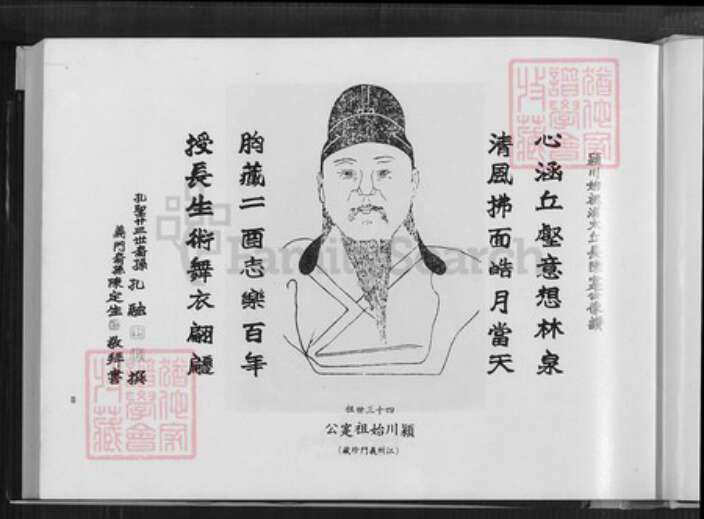 穎川始祖漢太丘長陳寔公像讚
心涵丘壑意想林泉
清風拂面皓月當天
胸藏二酉志樂百年
授長生術舞衣翩躚
孔聖廿三世裔孫孔融撰
義門裔孫陳定生敬繹書
四十三世祖
穎川始祖寔公
(江州義門珍藏)
FamilySearch
譜學會
珍藏
譜學會